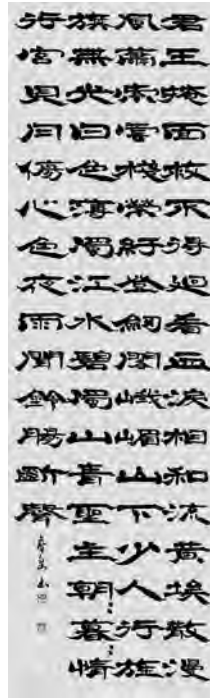 君王掩面救不得迴看血淚相和流黃埃散漫
風蕭索雲棧縈紆登劍閣峨嵋山下少人行旌
旗無光日色薄蜀江水碧蜀山青聖主朝〻暮〻情
行宮見月傷心色夜雨聞鈴腸斷聲